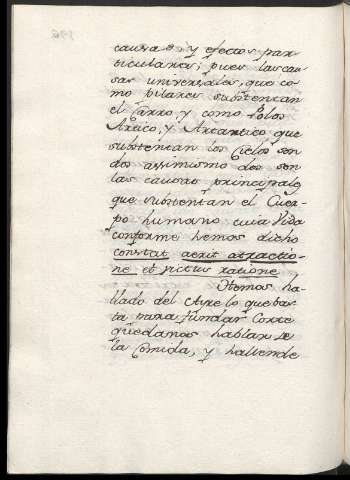 causas y efectos par
ticulares; pues las cau
sas universales, que co
mo pilares substentan
el Carro, y como Polos
Artico, y Antartico que
substentan los Cielos son
dos assimismo dos son
las causas principales
que substentan el Cuer
po humano cuia Vida
conforme hemos dicho
constat aerit attractio-
ne et victus ratione
Hemos ha-
llado del Ayre lo que bas
ta para fundar Corre
quedamos hablar de
la Comida, y haltende